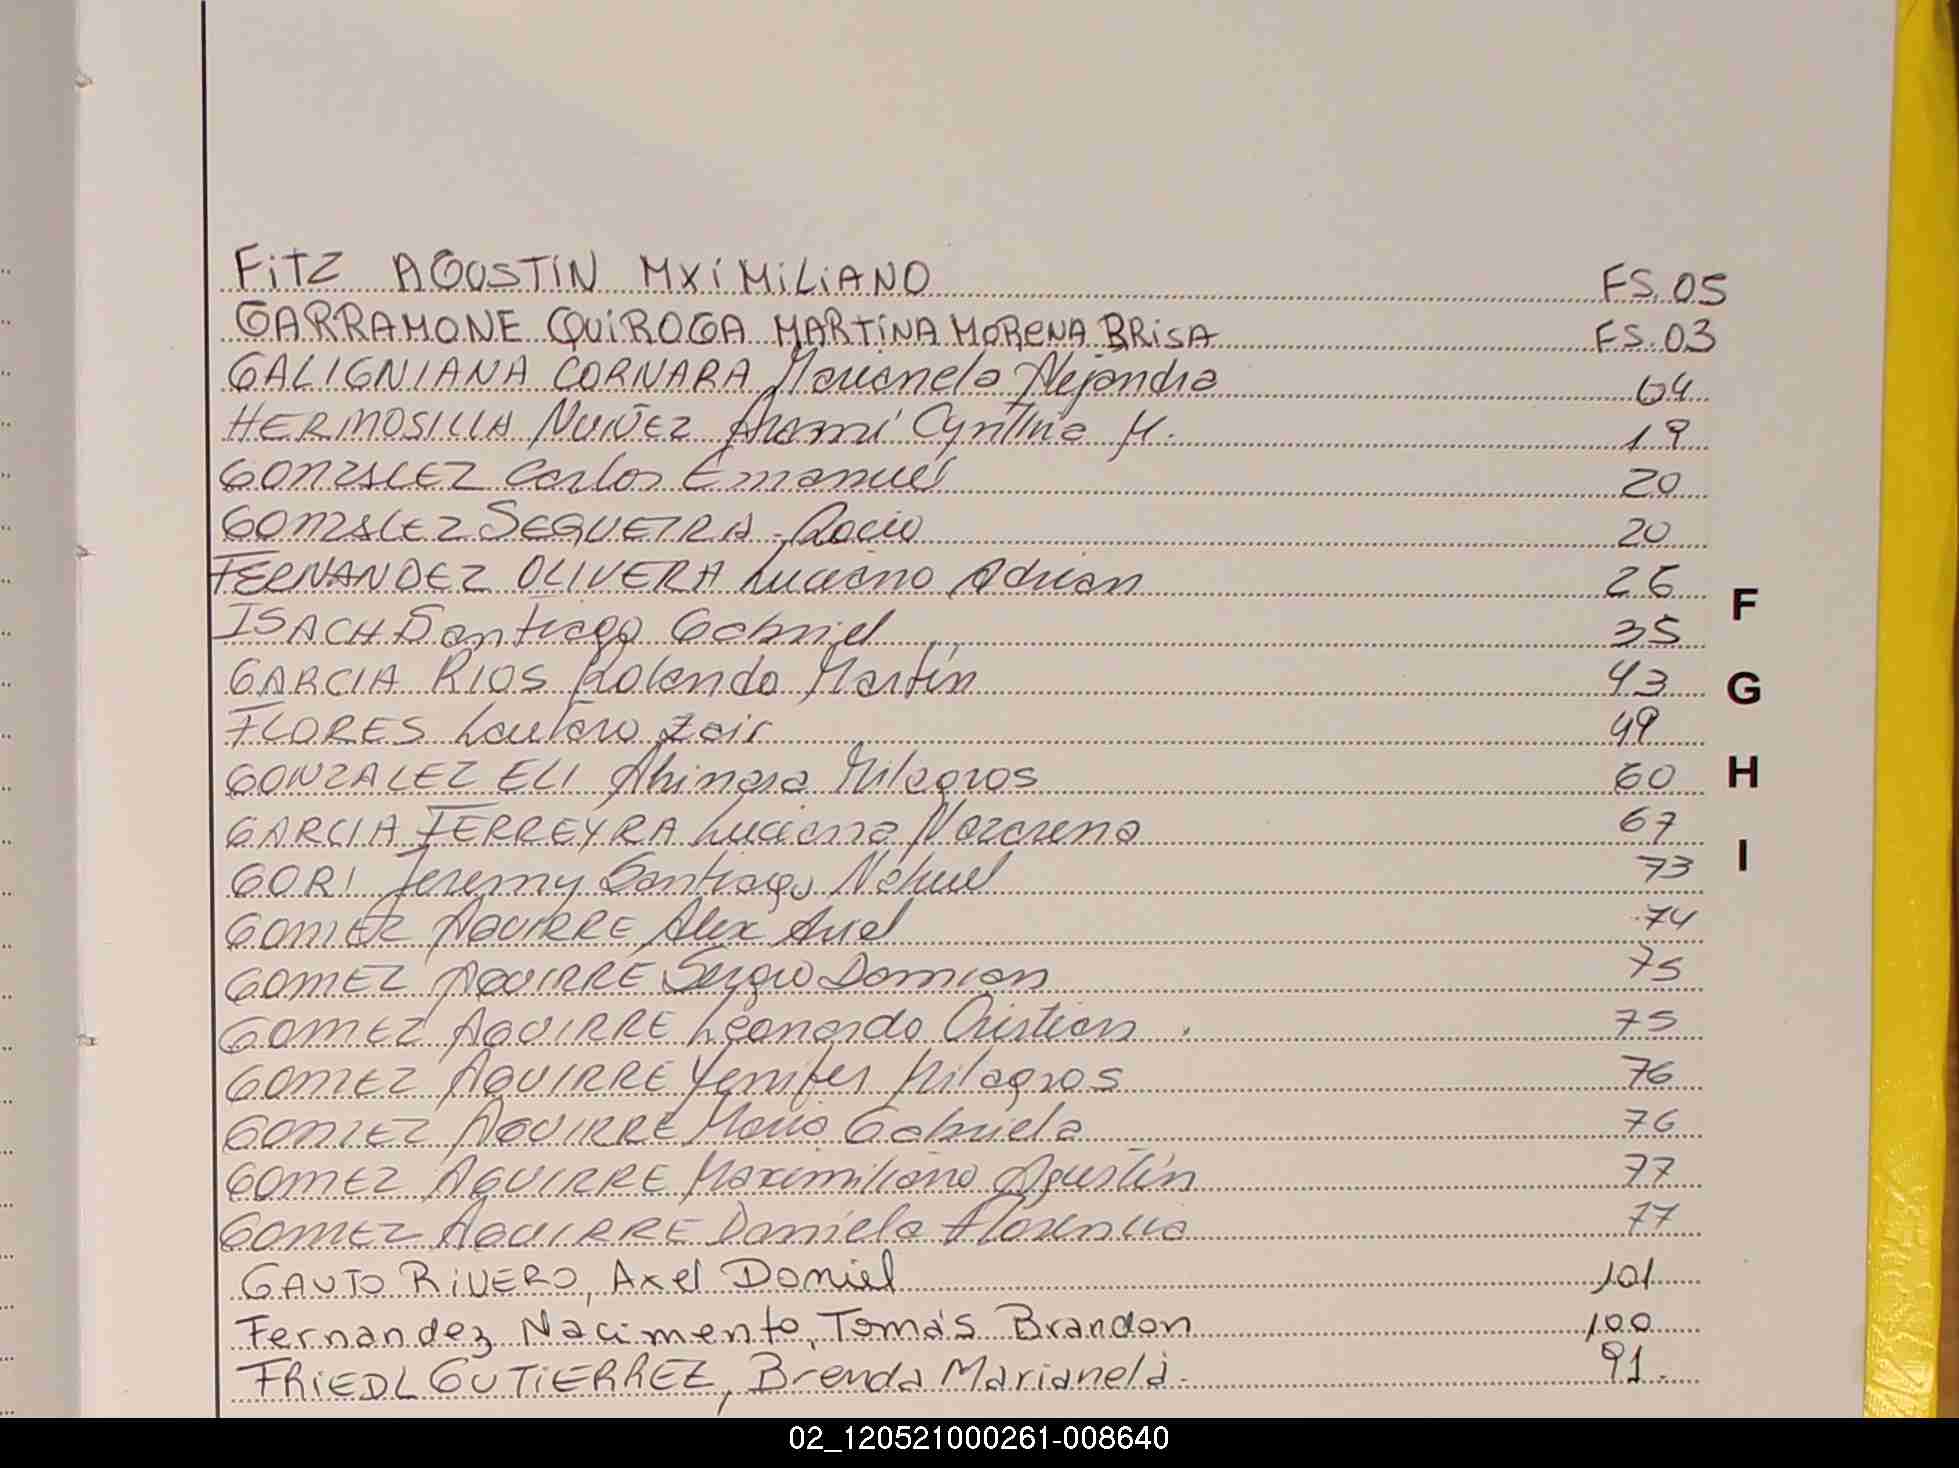 FiTZ AGUSTIN MXiMiLiANO FS. 05
GARRAMONE QUiROGA MARTiNA MORENA BRiSA FS. 03
GALIGNIANA CORNARA Marianela Alejandra 64
HERMOSILLA NUÑEZ Arami Cynthia M. 19
GONZALEZ Carlos Emanuel 20
GONZALEZ SEQUEIRA Rocio 20
FERNANDEZ OLIVERA Luciano Adrian 26
F
ISACH Santiago Gabriel 35
GARCIA RIOS Rolando Martín 43
G
FLORES Lautaro Zair 49
GONZALEZ ELI Ahinara Milagros 60
H
GARCIA FERREYRA Luciana Nazarena 67
I
GORI Jeremy Santiago Nahuel 73
GOMEZ AGUIRRE Alex Ariel 74
GOMEZ AGUIRRE Sergio Damian 75
GOMEZ AGUIRRE Leonardo Cristian . 75
GOMEZ AGUIRRE Yenifer Milagros 76
GOMEZ AGUIRRE Maria Gabriela 76
GOMEZ AGUIRRE Maximiliano Agustín 77
GOMEZ AGUIRRE Daniela Florencia 77
GAUTO RiVERO, Axel Daniel 101
Fernandez Nacimento, Tomás Brandon 100
FRiEDL GUTiERREZ, Brenda Marianela. 91.
02_120521000261-008640